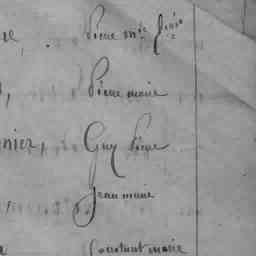 Pierre m.ie
Pierre marie
nier, Guy Pierre
Jean marie
Constant marie